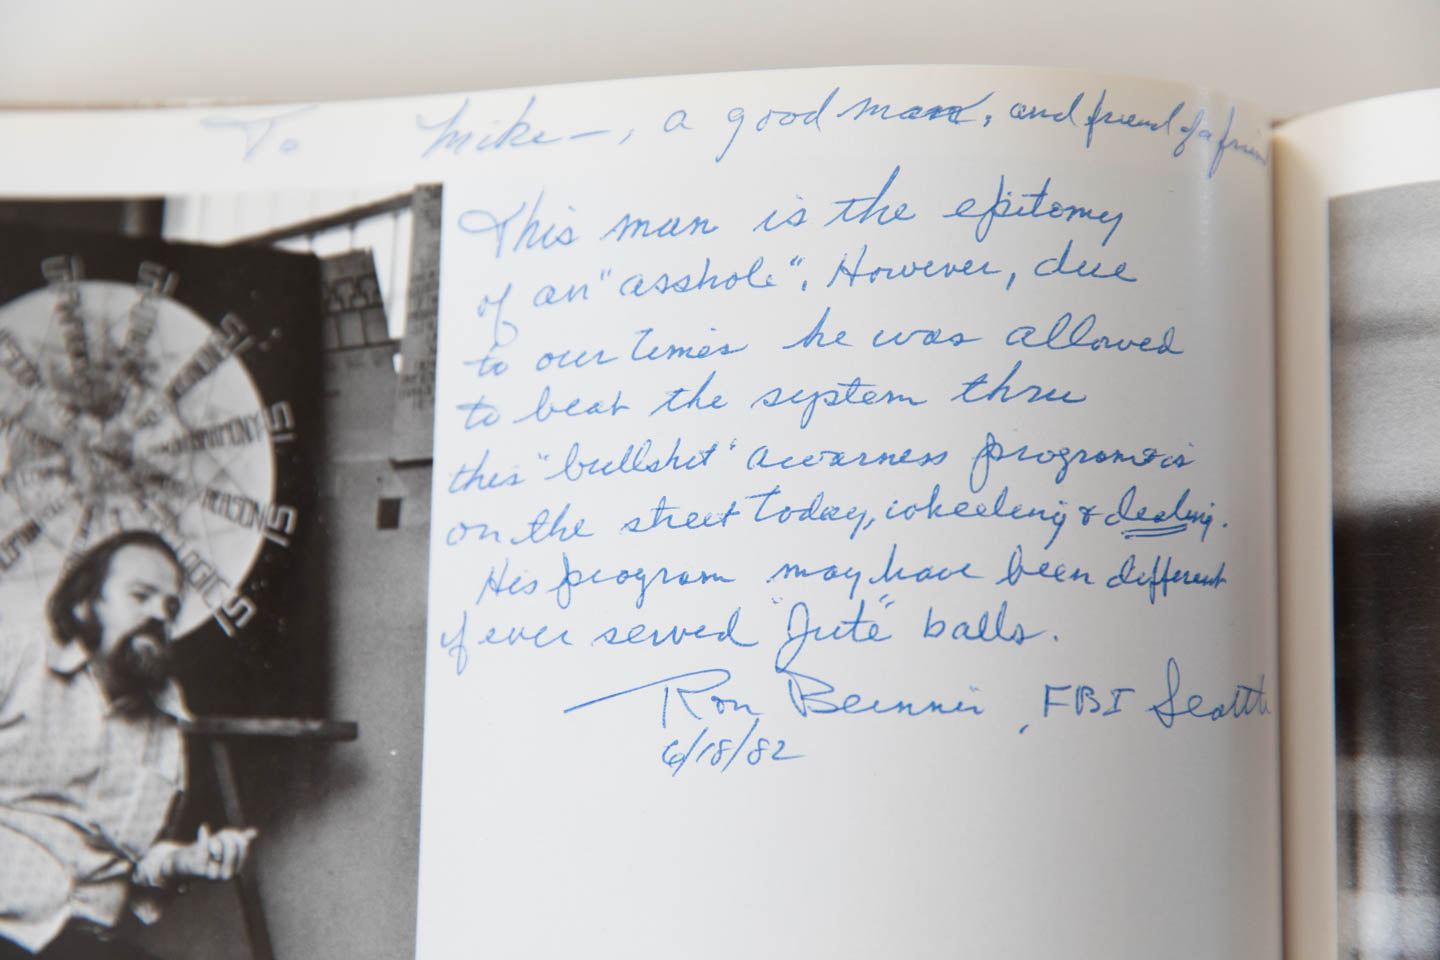 To Mike—, a good man, and friend of a
This man is the epitomy
of an "asshole". However, due
to our times he was allowed
to beat the system thru
this "bullshit" awarness program & is
on the street today, wheeleing & dealing.
His program may have been different
if ever served "Jute" balls.
Ron , FBI Seattle
6/18/82
IS IS IS IS IS IS
HARMONY
REASON
LOGIC